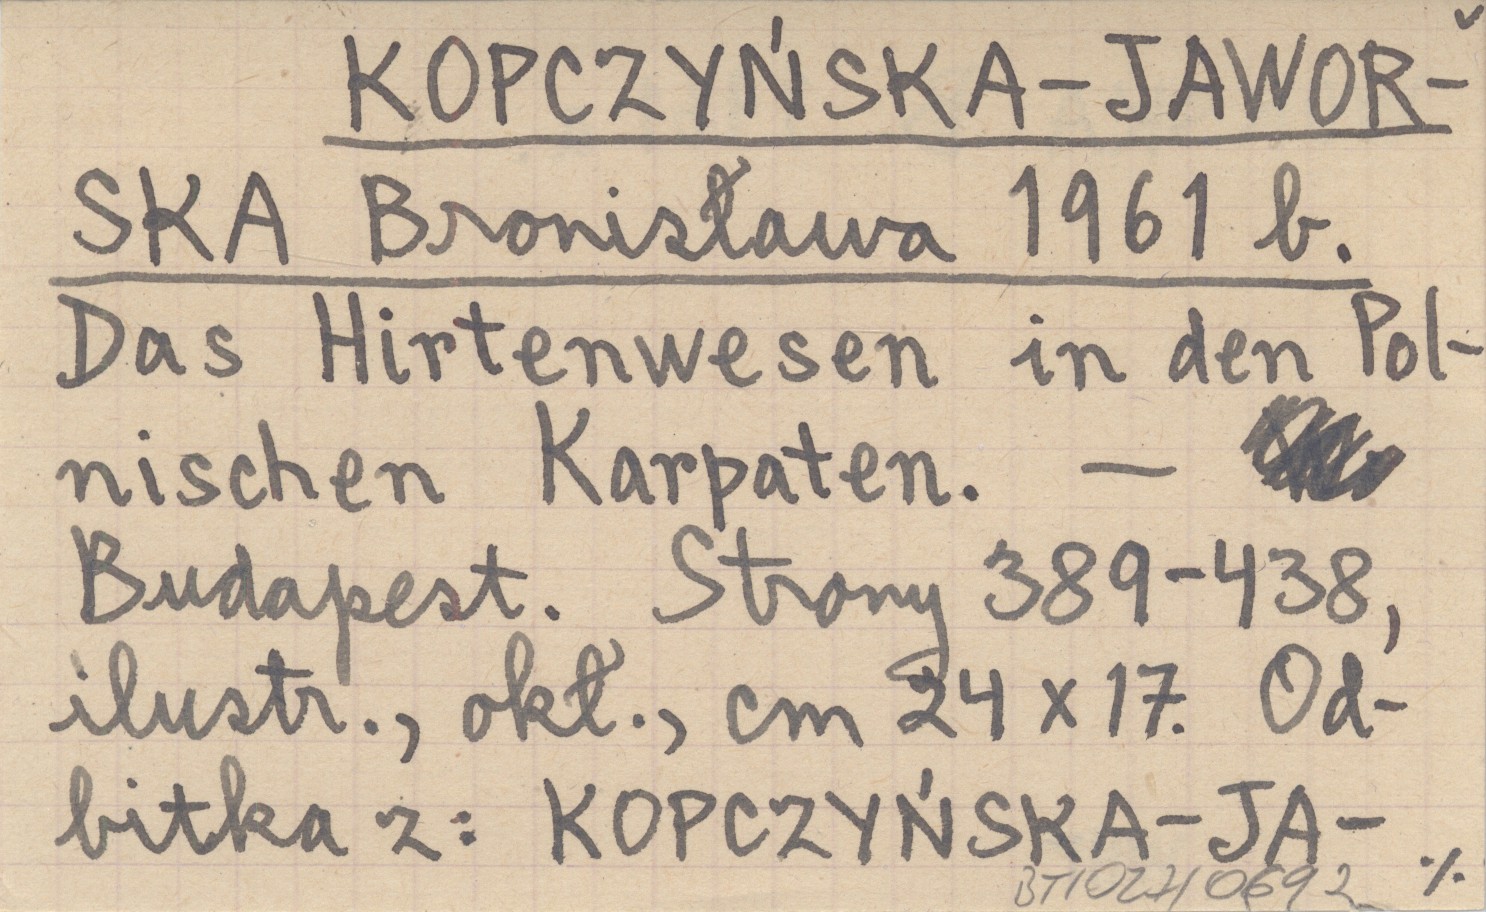 KOPCZYŃSKA-JAWOR-
SKA Bronisława 1961 b.
Das Hirtenwesen in den Pol-
nischen Karpaten. —
Budapest. Strony 389-438,
ilustr., okł., cm 24 x 17. Od-
bitka z: KOPCZYŃSKA-JA-
·/.